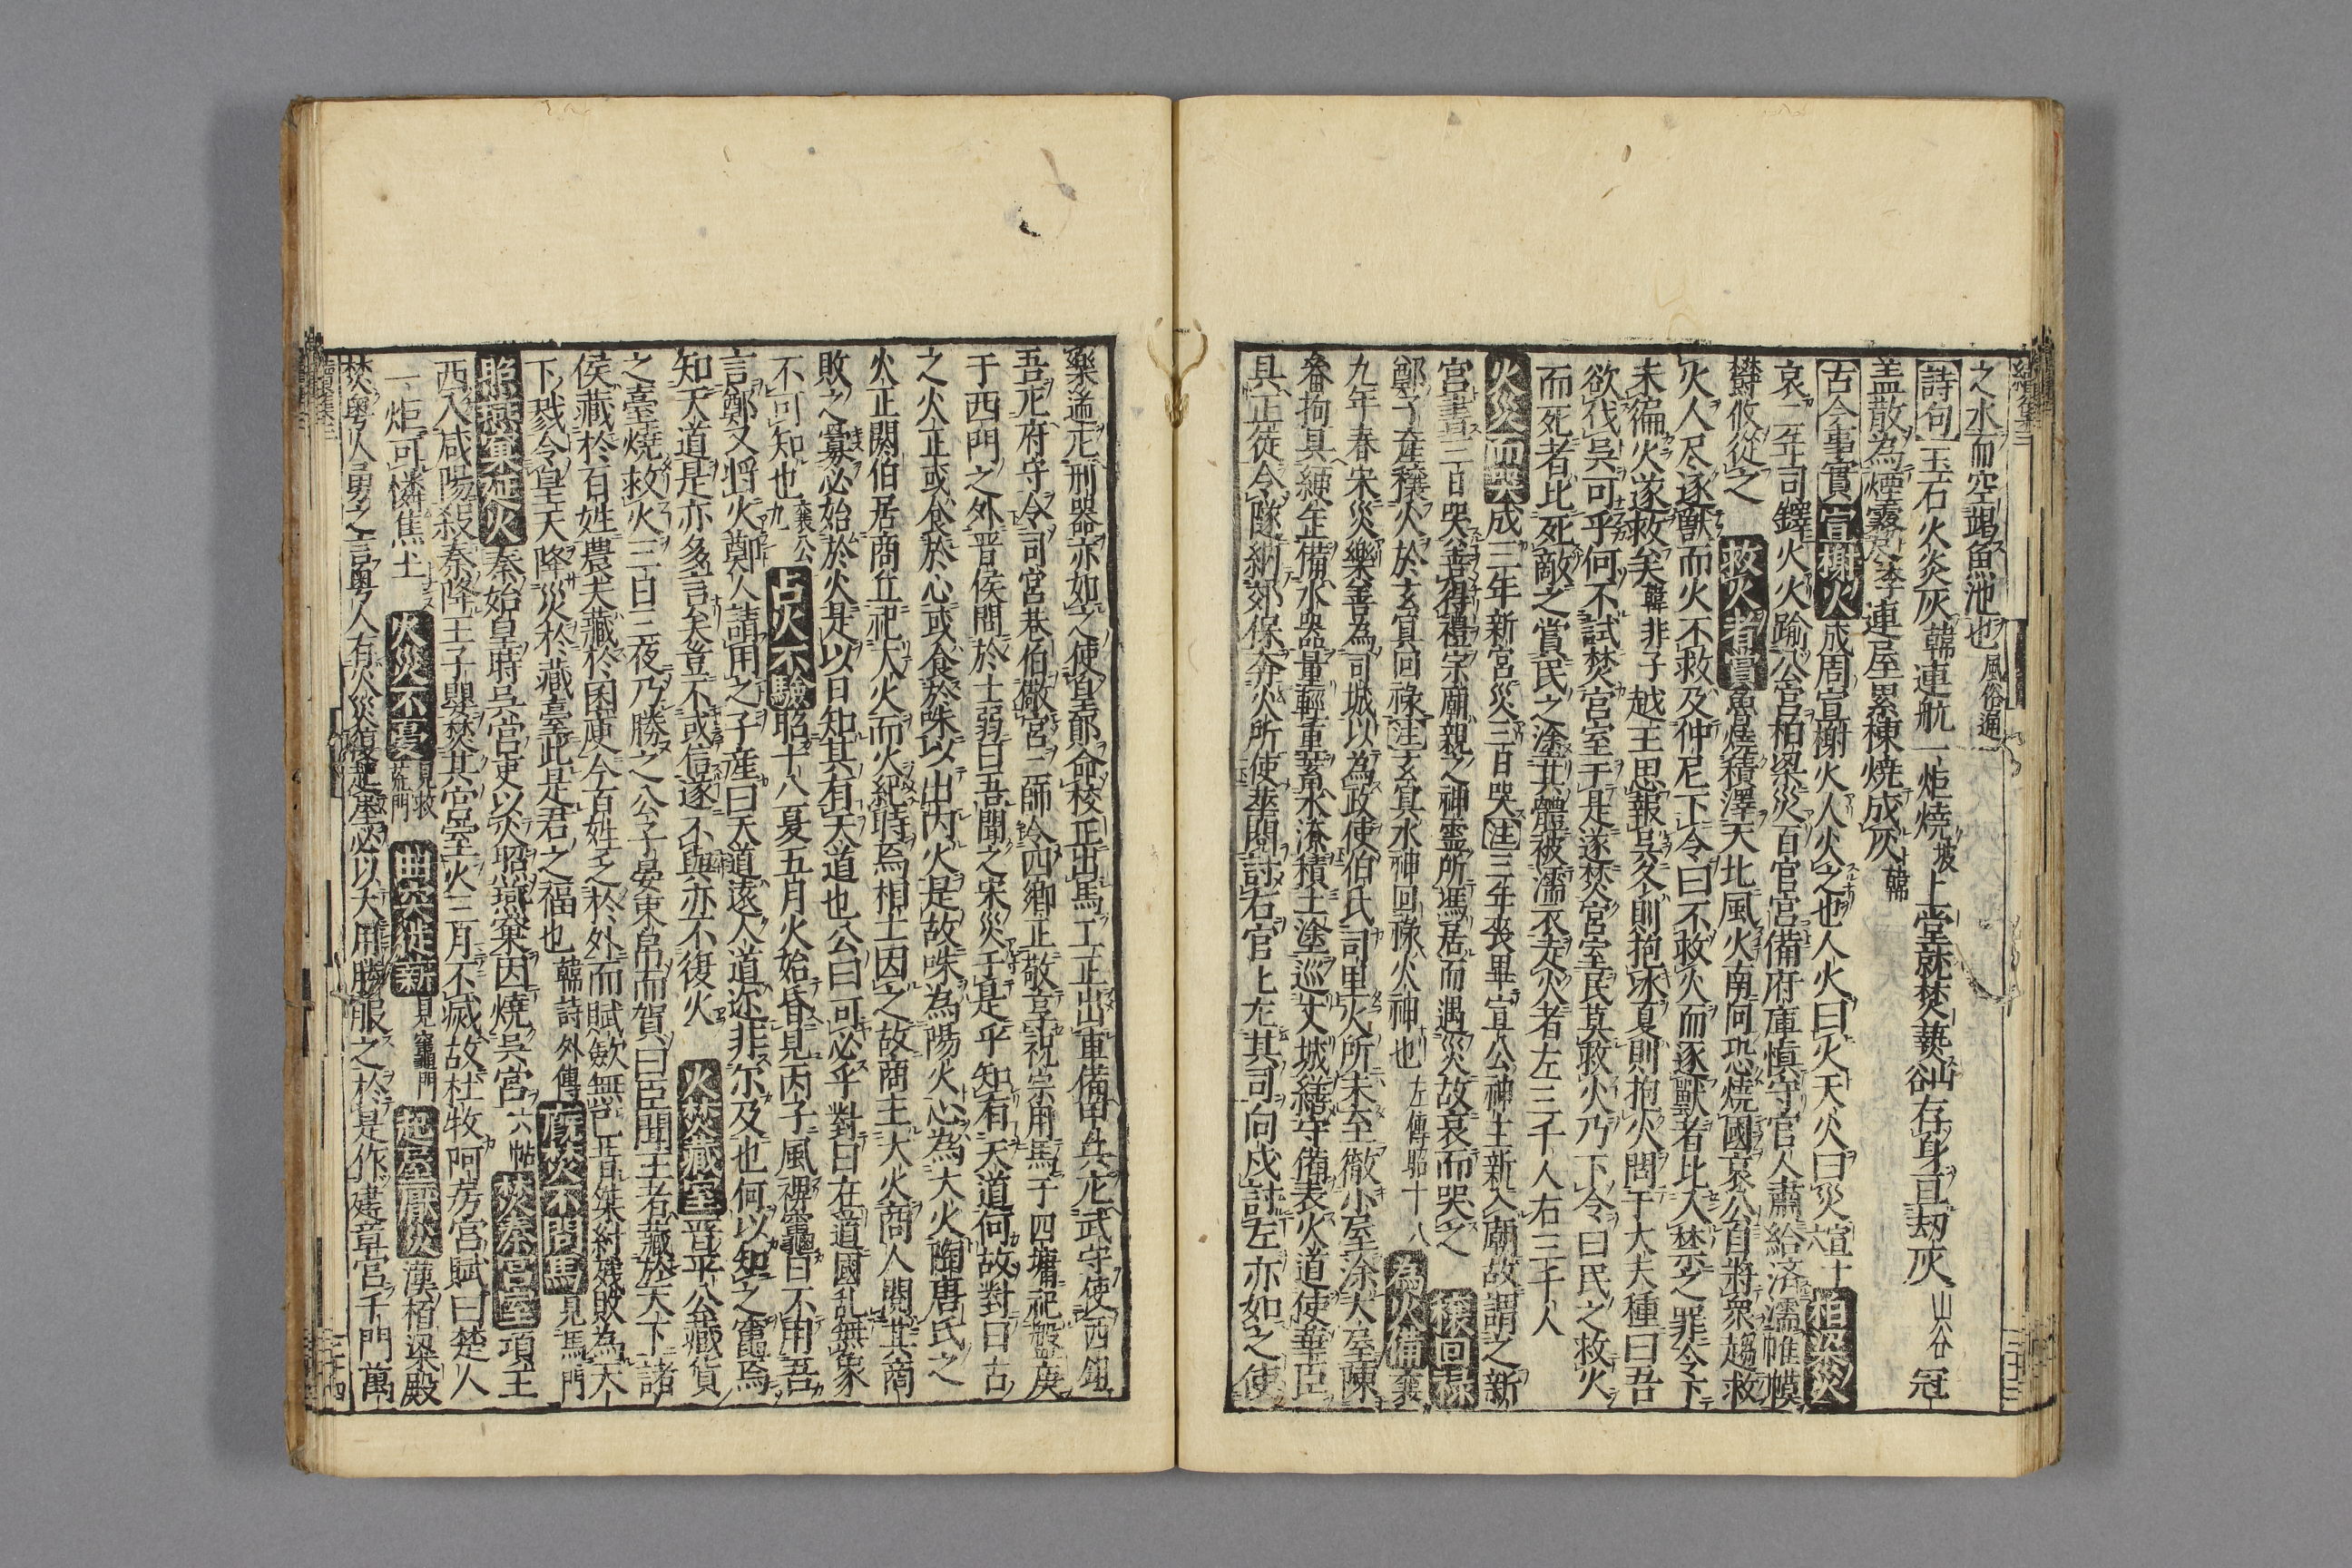 之水而空竭魚池也風俗通
詩句玉石火炎灰韓連航一炬燒坡上堂就焚爇谷存身亘劫灰山谷冠
盖散為煙霧尽李連屋累棟燒成灰韓
古今事實宣榭火成周宣榭火人火之也人火曰火天火曰災宣十六柏梁災
哀二年司鐸火火踰公宮柏梁災百官官備府庫慎守官人肅給済濡帷幕
欝攸從之救火者賞魯燒積澤天北風火南向恐燒國哀公自將衆趨救
火人尽逐獸而火不救及仲尼下令曰不救火而逐獸者比大禁之罪令下
未徧火遂救矣韓非子越王思報吳久則抱氷夏則抱火問于大夫種曰吾
欲伐吳可乎何不試焚宮室于是遂焚宮室民莫救火乃下令曰民之救火
而死者比死敵之賞民之塗其體被濡衣走火者左三千人右三千人
火災而哭成三年新宮災三日哭注三年喪畢宣公神主新入廟故謂之新
宮書三日哭善得禮宗廟親之神靈所馮居而遇災故哀而哭之禳回祿
鄭子產禳火於玄冥回祿注玄冥水神回祿火神也左傳昭十八為火備襄
九年春宋災樂喜為司城以為政使伯氏司里火所未至徹小屋涂大屋陳
畚挶具綆缶備水器量輕重蓄水潦積土塗巡丈城繕守備表火道使華臣
具正徒令隧納郊保奔火所使華閱討右官上左其司向戌討左亦如之使
樂遄尼刑器亦如之使皇鄖命校正出馬工正出車備甲兵尼武守使西鉏
吾尼府守令司宮巷伯儆宮二師令四鄉正敬享祝宗用馬于四墉祀盤庚
于西門之外晋侯問於士弱曰吾聞之宋災于是乎知有天道何故對曰古
之火正或食於心或食於咮以出內火是故咮為陽火心為大火陶唐氏之
火正閼伯居商丘祀大火而火紀時焉相土因之故商主大火商人閱其禍
敗之釁必始於火是以日知其有天道也公曰可必乎對曰在道國乱無象
不可知也襄公九占火不驗昭十八夏五月火始昏見丙子風裨竈曰不用吾
言鄭又将火鄭人請用之子產曰天道遠人道迩非尓及也何以知之竈焉
知天道是亦多言矣豈不或信遂不與亦不復火火焚藏室晋平公藏貨
之臺燒救火三日三夜乃勝之公子晏束帛而賀曰臣聞王者藏於天下諸
侯藏於百姓農夫藏於囷庾今百姓乏於外而賦斂無已昔桀紂殘敗為天
下戮今皇天降災於藏臺此是君之福也韓詩外傳廐焚不問馬見馬門
照燕窠延火秦始皇時吳宮吏以火照燕窠因燒吳宮六帖焚秦宮室項王
西入咸陽殺秦降王子嬰焚其宮室火三月不滅故杜牧阿房宮賦曰楚人
一炬可憐焦土火災不憂見救荒門曲突徙薪見竈門起屋厭火漢栢梁殿
焚粤人勇之言粤人有火災復起屋必以大用勝服之於是作建章宮千門萬